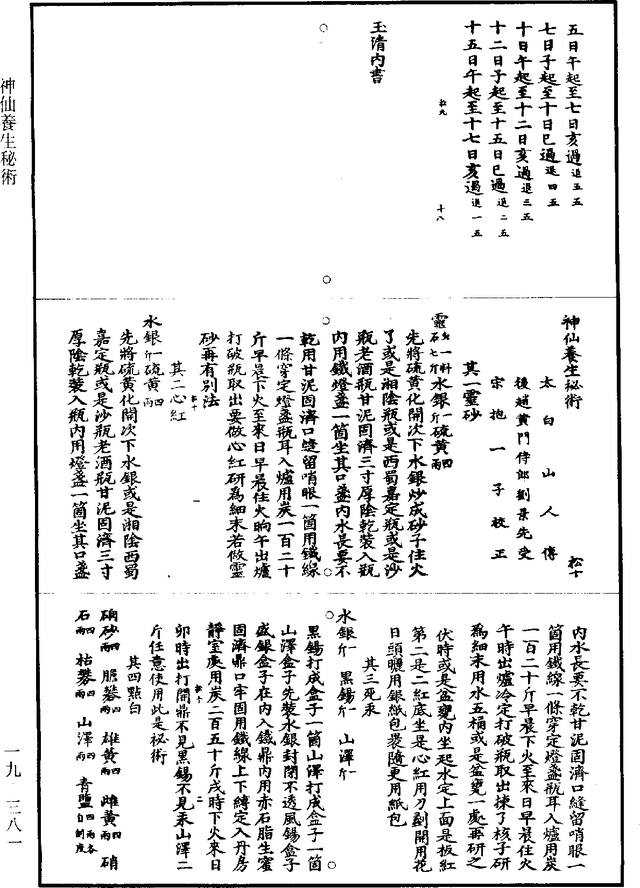 五日午起至七日亥過退五五
七日子起至十日巳過退四五
十日午起至十二日亥過退三五
十二日子起至十五日巳過退二五
十五日午起至十七日亥過退一五
松九 十八
玉清內書
神仙養生秘術 松十
太白山人傳
後趙黃門侍郎劉景先受
宗抱一子校正
其一靈砂
水銀一斤硫黃四兩
先將硫黃化開次下水銀炒成砂子住火
了或是湘陰瓶或是西蜀嘉定瓶或是沙
瓶老酒瓶甘泥固濟三寸厚陰乾裝入瓶
內用鐵燈盞一箇坐其口盞內水長要不
乾用甘泥固濟口縫留哨眼一箇用鐵線
一條穿定燈盞瓶耳入爐用炭一百二十
斤早晨下火至來日早晨住火晌午出爐
打破瓶取出要做心紅研為細末若做靈
砂再有別法
松十 一
其二心紅
水銀一斤硫黃四兩
先將硫黃化開次下水銀或是湘陰西蜀
嘉定瓶或是沙瓶老酒瓶甘泥固濟三寸
厚陰乾裝入瓶內用燈盞一箇坐其口盞
內水長要不乾甘泥固濟口縫留哨眼一
箇用鐵線一條穿定燈盞瓶耳入爐用炭
一百二十斤早晨下火至來日早晨住火
午時出爐冷定打破瓶取出揀了核子研
為細末用水五桶或是盆甕一處再研之
伏時或是盆甕內坐起水定上面是板紅
第二是二紅底坐是心紅用刀劃開用花
日頭曬用銀紙包裹隨更用紙包
其三死汞
水銀一斤 黑錫一斤 山澤一斤
黑錫打成盒子一箇山澤打成盒子一箇
山澤盒子先裝水銀封閉不透風錫盒子
盛銀盒子在內入鐵鼎內用赤石脂生蜜
固濟鼎口牢固用鐵線上下縛定入丹房
靜室處用炭二百五十斤戌時下火來日
松十 二
卯時出打開鼎不見黑錫不見汞山澤二
斤任意使用此是秘術
其四點白
硇砂四兩 膽礬四兩 雄黃四兩 雌黃四兩 硝
石四兩 枯礬四兩 山澤四兩 青鹽四兩各自制度
神仙養生秘術
一九 三八一